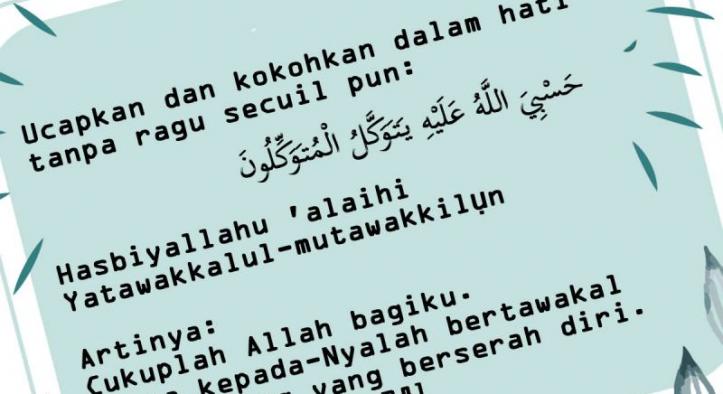 Ucapkan dan kokohkan dalam hati
tanpa ragu secuil pun:
حَسْبِيَ اللَّهُ عَلَيْهِ يَتَوَكَّلُ الْمُتَوَكِّلُونَ
Hasbiyallahu 'alaihi
Yatawakkalul-mutawakkilụn
Artinya:
Cukuplah Allah bagiku.
kepada-Nyalah bertawakal
yang berserah diri.